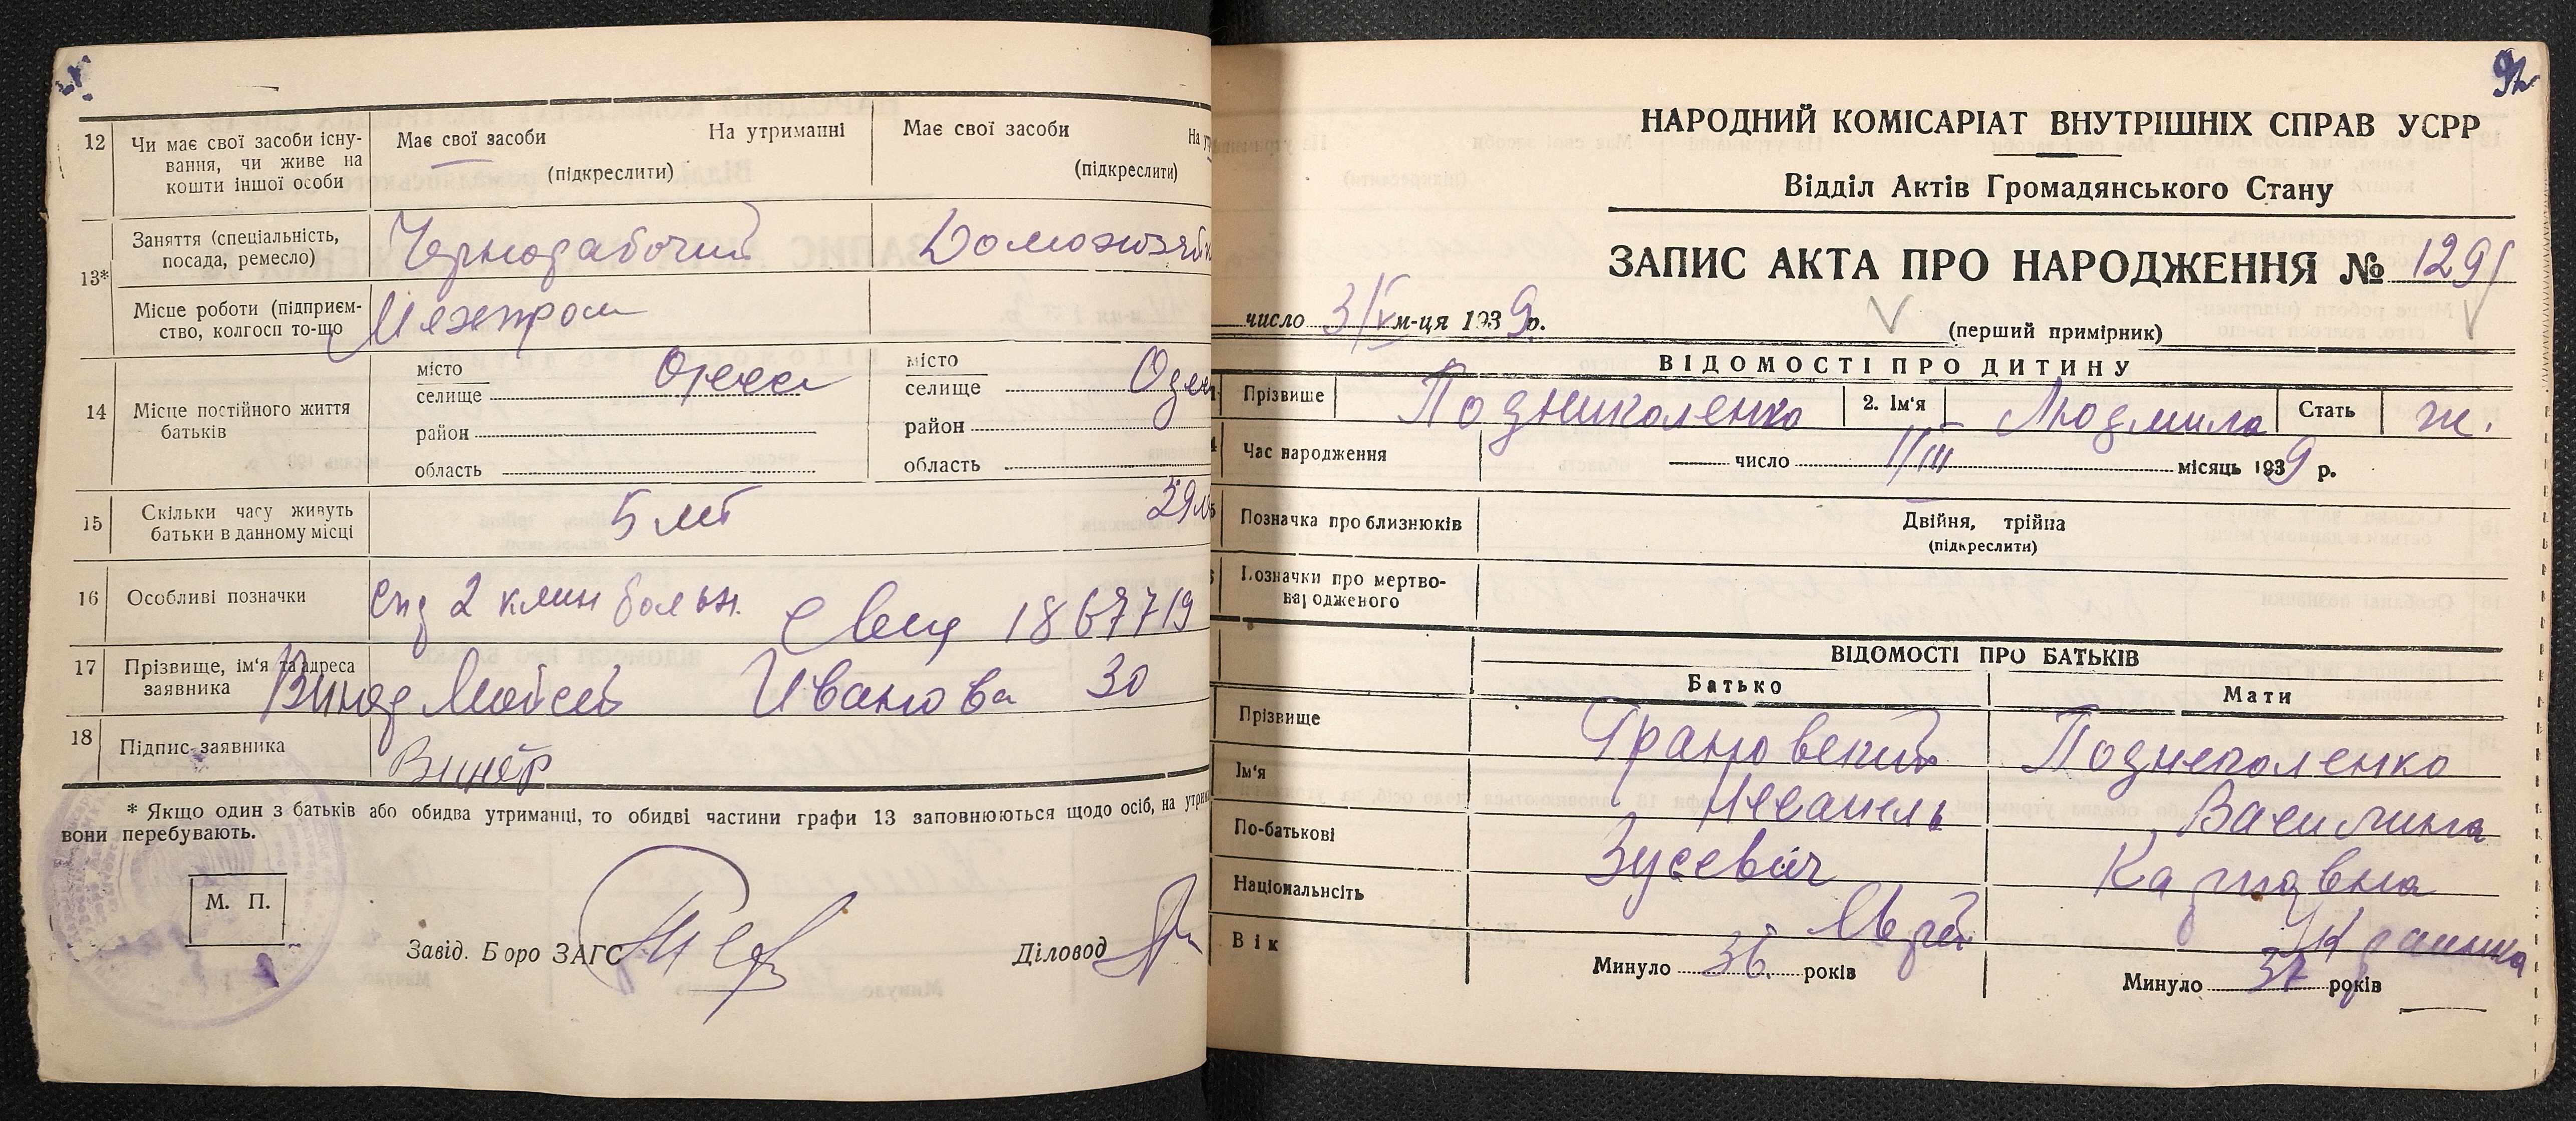 12
Чи має свої засоби існу-
вання, чи живе на
кошти іншої особи
Має свої засоби На утриманні
(підкреслити)
Має свої засоби На у
(підкреслити)
13*
Заняття (спеціальність,
посада, ремесло)
Чернорабочий
Домохозяйк
Місце роботи (підприєм-
ство, колгосп то-що
14
Місце постійного життя
батьків
місто
селище Одесса
район
область
місто
селище Одес
район
область
15
Скільки часу живуть
батьки в данному місці
5 лет
29 л
16
Особливі позначки
2 клин больн. 1867719
17
Прізвище, ім'я та адреса
заявника
Винер Мойсей Иванова 30
18
Підпис заявника
Винер
* Якщо один з батьків або обидва утриманці, то обидві частини графи 13 заповнюються щодо осіб, на утрим
вони перебувають.
М. П.
Завід. Боро ЗАГС
Діловод
92
НАРОДНИЙ КОМІСАРІАТ ВНУТРІШНІХ СПРАВ УСРР
Відділ Актів Громадянського Стану
ЗАПИС АКТА ПРО НАРОДЖЕННЯ № 1291
число 3/IV м-ця 1939 р.
(перший примірник)
ВІДОМОСТІ ПРО ДИТИНУ
Прізвише Подниколенко 2. Ім'я Людмила Стать ж.
Час народження число 1/III місяць 1939 р.
Позначка про близнюків
Двійня, трійна
(підкреслити)
Позначки про мертво-
народженого
ВІДОМОСТІ ПРО БАТЬКІВ
Батько Мати
Прізвище Грановский Поднеколенко
Ім'я Василина
По-батькові Зусевич Карповна
Національнсіть Еврей Украинка
Вік Минуло 36 років Минуло 37 років